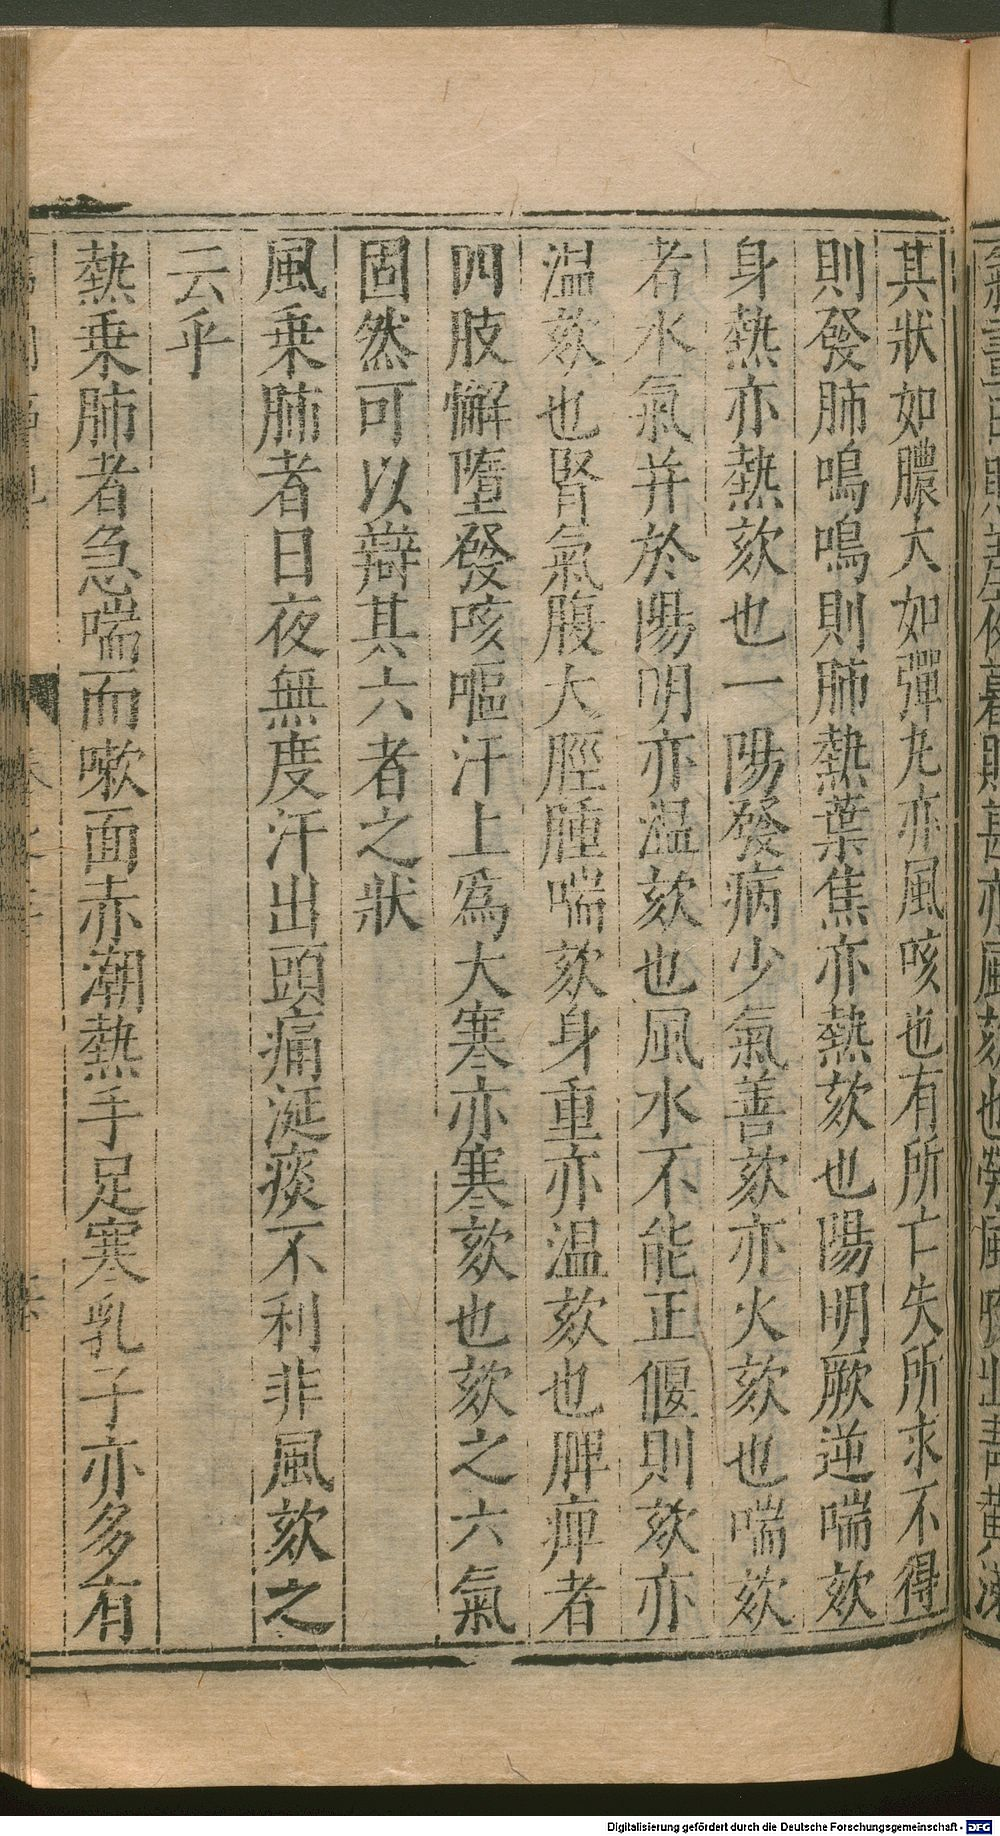 其狀如膿大如彈丸亦風咳也有所亡失所求不得
則發肺鳴鳴則肺熱葉焦亦熱欬也陽明厥逆喘欬
身熱亦熱欬也一陽發病少氣善欬亦火欬也喘欬
者水氣并於陽明亦温欬也風水不能正偃則欬亦
温欬也腎氣腹大脛腫喘欬身重亦温欬也脾痺者
四肢懈墮發咳嘔汁上爲大寒亦寒欬也欬之六氣
固然可以辯其六者之狀
風乘肺者日夜無度汗出頭痛涎痰不利非風欬之
云乎
熱乘肺者急喘而嗽面赤潮熱手足寒乳子亦多有
Digitalisierung gefördert durch die Deutsche Forschungsgemeinschaft - DFG